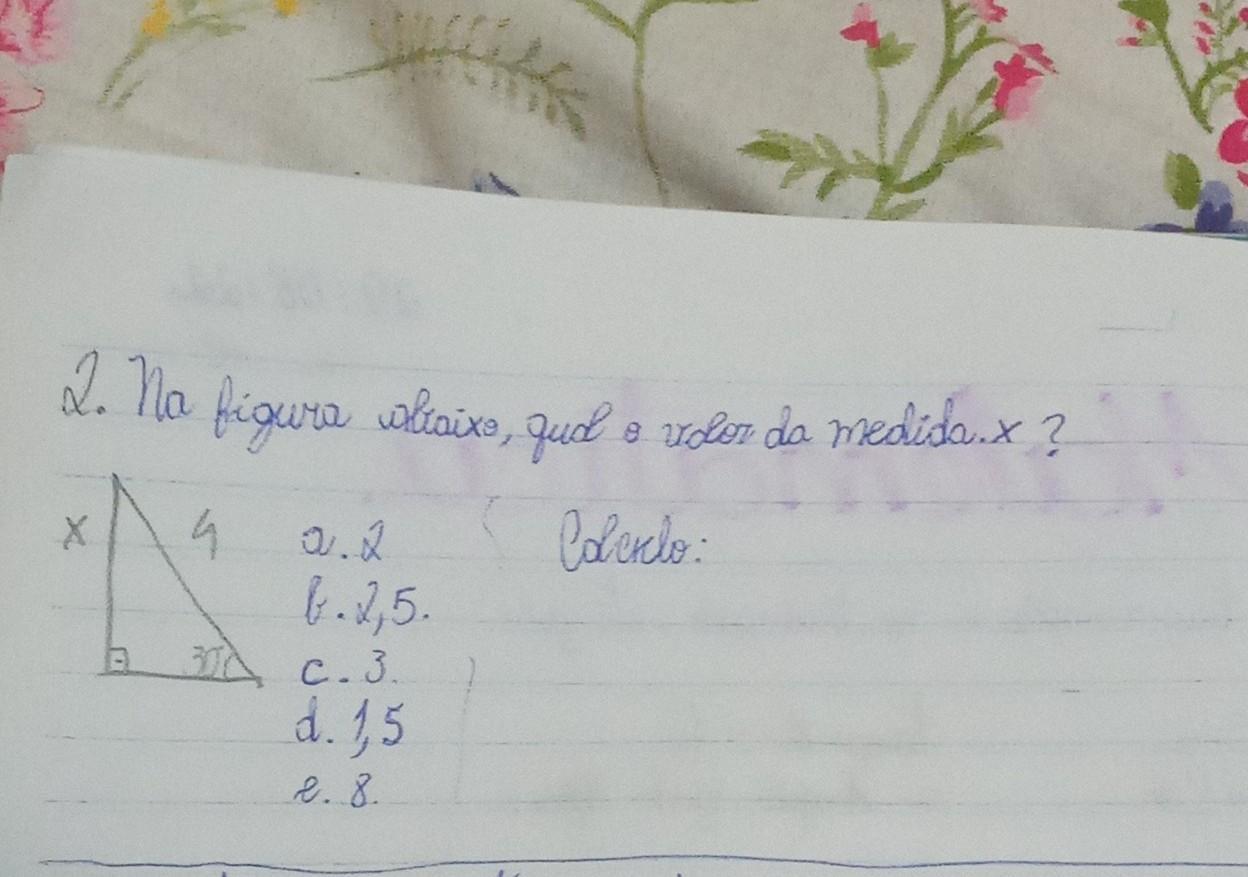 2. Na figura abaixo, qual o valor da medida x?
x
4
30°
a. 2
b. 2,5.
c. 3.
d. 1,5
e. 8.
Calculo: